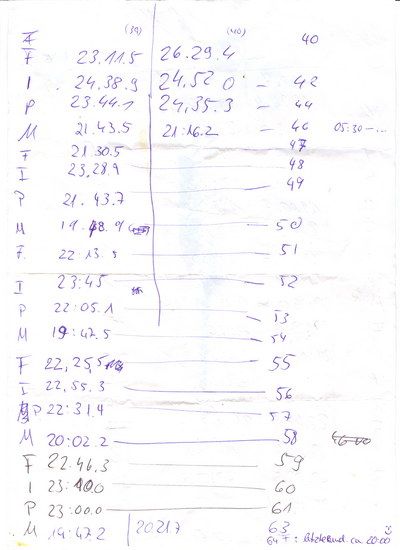 (39) (40)
F 23.11.5 26.29.4 40
I 24,38.9 24,52 0 - 42
P 23.44.1 24,35.3 - 44
M 21.43.5 21:16.2 - 46 05:30-...
47
F 21.30.5
I 23,28.9 48
49
P 21.43.7
M 50
F. 22:13.5 51
I 23:45 52
P 22:05.1 53
M 19:47.5 54
F 22,25,5 55
I 22,55.3 56
P 22:31.4 57
M 20:02.2 58
F 22.46.3 59
I 60
P 23:00.0 61
M 19:47.2 20217 63
64 F: ca 20:00